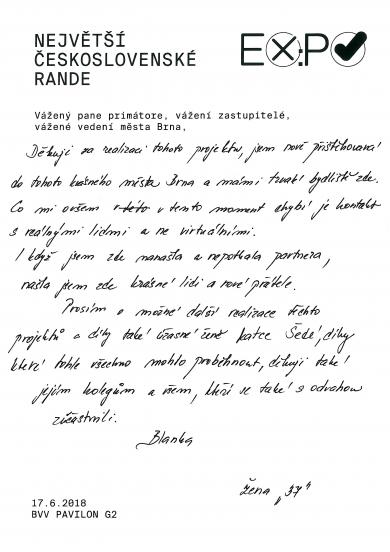 NEJVĚTŠÍ
ČESKOSLOVENSKÉ
RANDE
EXPO
Vážený pane primátore, vážení zastupitelé,
vážené vedení města Brna,
Děkuji za realizaci tohoto projektu, jsem nově přistěhovaná
do tohoto krásného města Brna a mám i trvalé bydliště zde.
Co mi ovšem v této v tento moment chybí je kontakt
s reálnými lidmi a ne virtuálními.
I když jsem zde nenašla a nepotkala partnera,
našla jsem zde krásné lidi a nové přátele.
Prosím o možné další realizace těchto
projektů a díky také úžasné ženě Katce Šedé, díky
které tohle všechno mohlo proběhnout, děkuji také
jejím kolegům a všem, kteří se také s odvahou
zúčastnili.
Blanka
žena „37"
17.6.2018
BVV PAVILON G2